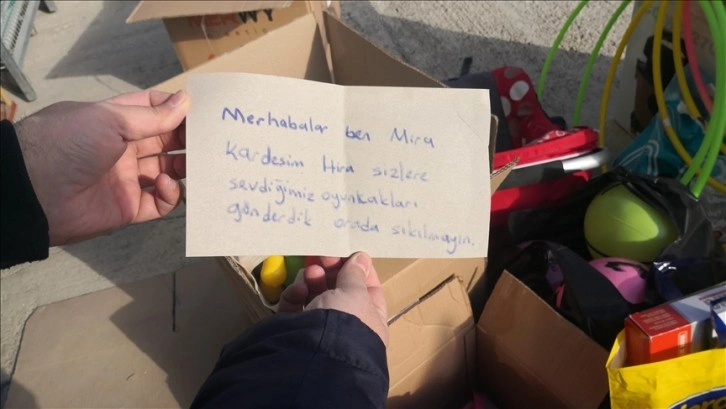 Merhabalar ben Mira
kardeşim Hira sizlere
sevdiğimiz oyuncakları
gönderdik orada sıkılmayın.